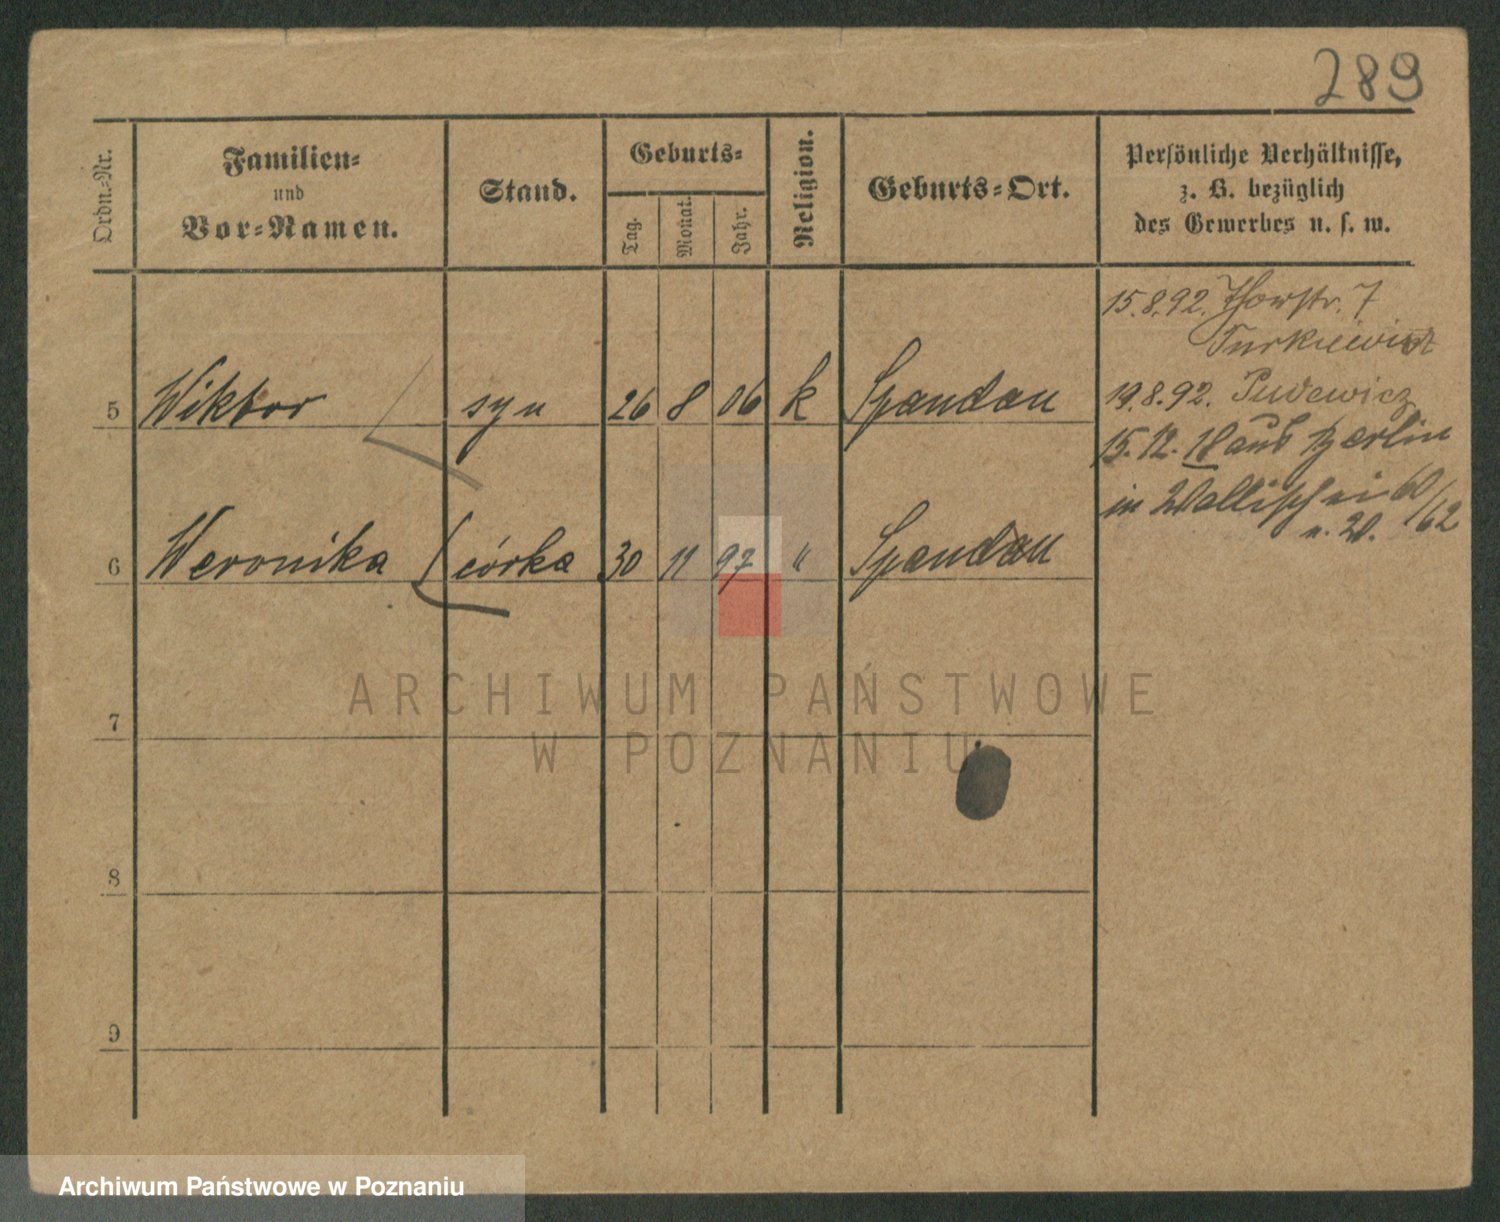 289
Ordn.-Nr.
Familien-
und
Vor-Namen.
Stand.
Geburts-
Tag.
Monat.
Jahr.
Religion.
Geburts-Ort.
Persönliche Verhältnisse,
z. B. bezüglich
des Gewerbes u. s. w.
15.8.92. Thorstr. 7
Turkiewicz
5 Wiktor syn 26 8 06 k Spandau
19.8.92. Pudewicz
15.12.18 aus Berlin
in Wallischei 60/62
6 Weronika córka 30 11 97 " Spandau
7
8
9
ARCHIWUM PAŃSTWOWE
W POZNANIU
Archiwum Państwowe w Poznaniu